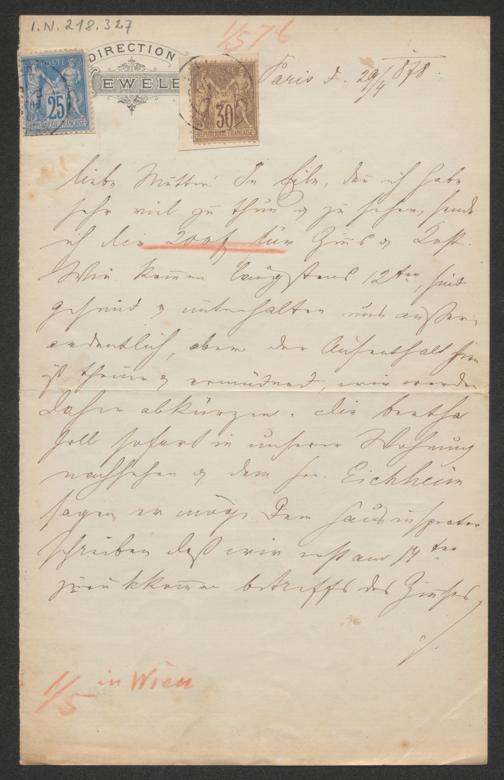 I.N. 218.327
1/5 78
DIRECTION
EWELE
POSTE
25
30
REPUBLIQUE FRANÇAISE
Paris d. 29/4 1878.
liebe Mutter! In Eile, den ich habe
sehr viel zu thun & zu sehen, sende
ich dir 200 f für Zins & Kost.
Wir kommen längstens 12ten, sind
gesund & unterhalten uns außer-
ordentlich, aber der Aufenthalt hier
ist theuer & ermüdend, wir werden
daher abkürzen. die bertha
soll sofort in unserer Wohnung
nachsehen & dem Hr. Eichheim
sagen er möge dem Hausinspector
schreiben daß wir erst am 14ten
zurükkommen betreffs des Zinses
1/5 in Wien